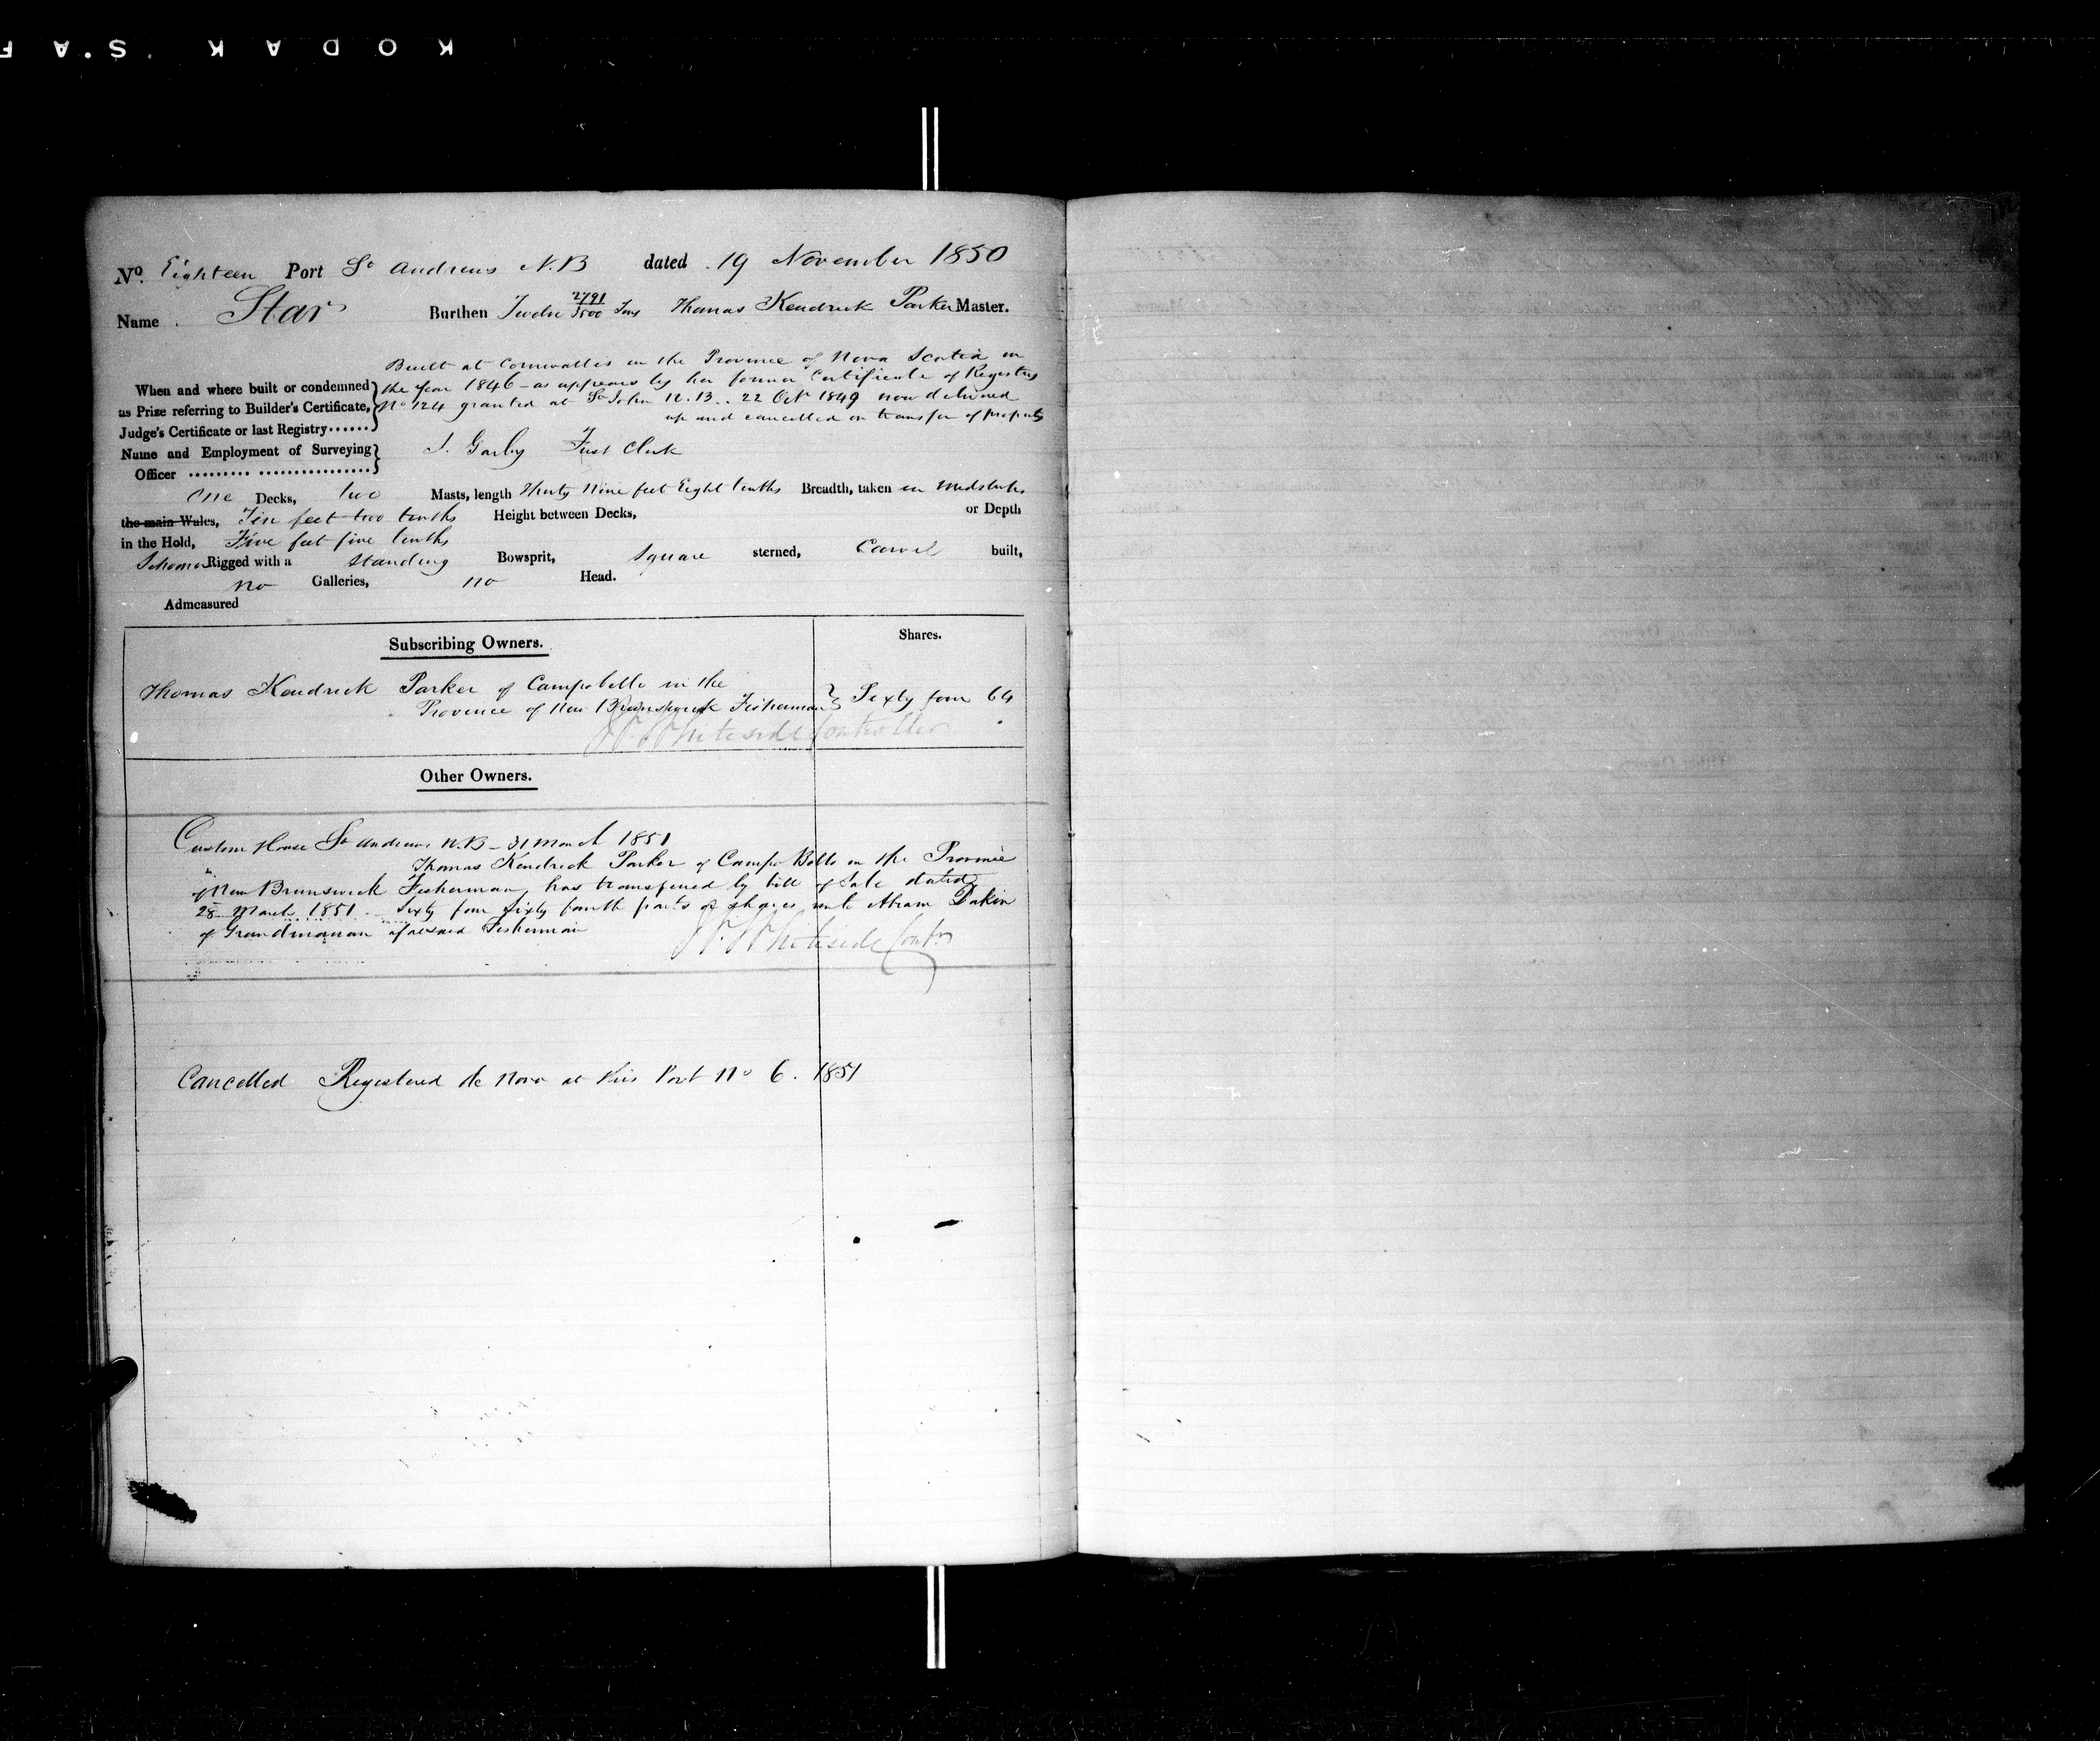 KODAK S.A F
No. Eighteen Port St Andrews N.B dated 19 November 1850
Name Star Burthen Twelve 2791/3500 Tons Thomas Kendrick Parker Master.
Built at Cornwallis in the Province of Nova Scotia in
When and where built or condemned the year 1846 - as appears by her former Certificate of Registry
as Prize referring to Builder's Certificate, No 124 granted at St John N.B. 22 Oct 1849 now delivered
Judge's Certificate or last Registry...... up and cancelled on transfer of property
Name and Employment of Surveying
Officer ......... ................ J. Garby First Clerk
One Decks, two Masts, length Thirty Nine feet Eight tenths Breadth, taken in Midships
the main Wales, Ten feet two tenths Height between Decks, or Depth
in the Hold, Five feet five tenths
Schooner Rigged with a Standing Bowsprit, Square sterned, Carvel built,
no Galleries, no Head.
Admeasured
Subscribing Owners. Shares.
Thomas Kendrick Parker of Campobello in the
Province of New Brunswick Fisherman } Sixty four 64
Whiteside Controller
Other Owners.
Custom House St Andrews N.B - 31 March 1851
Thomas Kendrick Parker of Campo Bello in the Province
of New Brunswick Fisherman, has transferred by bill of Sale dated
28 March 1851 Sixty four Sixty fourth parts or shares unto Abram Dakin
of Grandmanan aforesaid Fisherman
Whiteside Contr
Cancelled Registered de Novo at this Port No 6. 1851